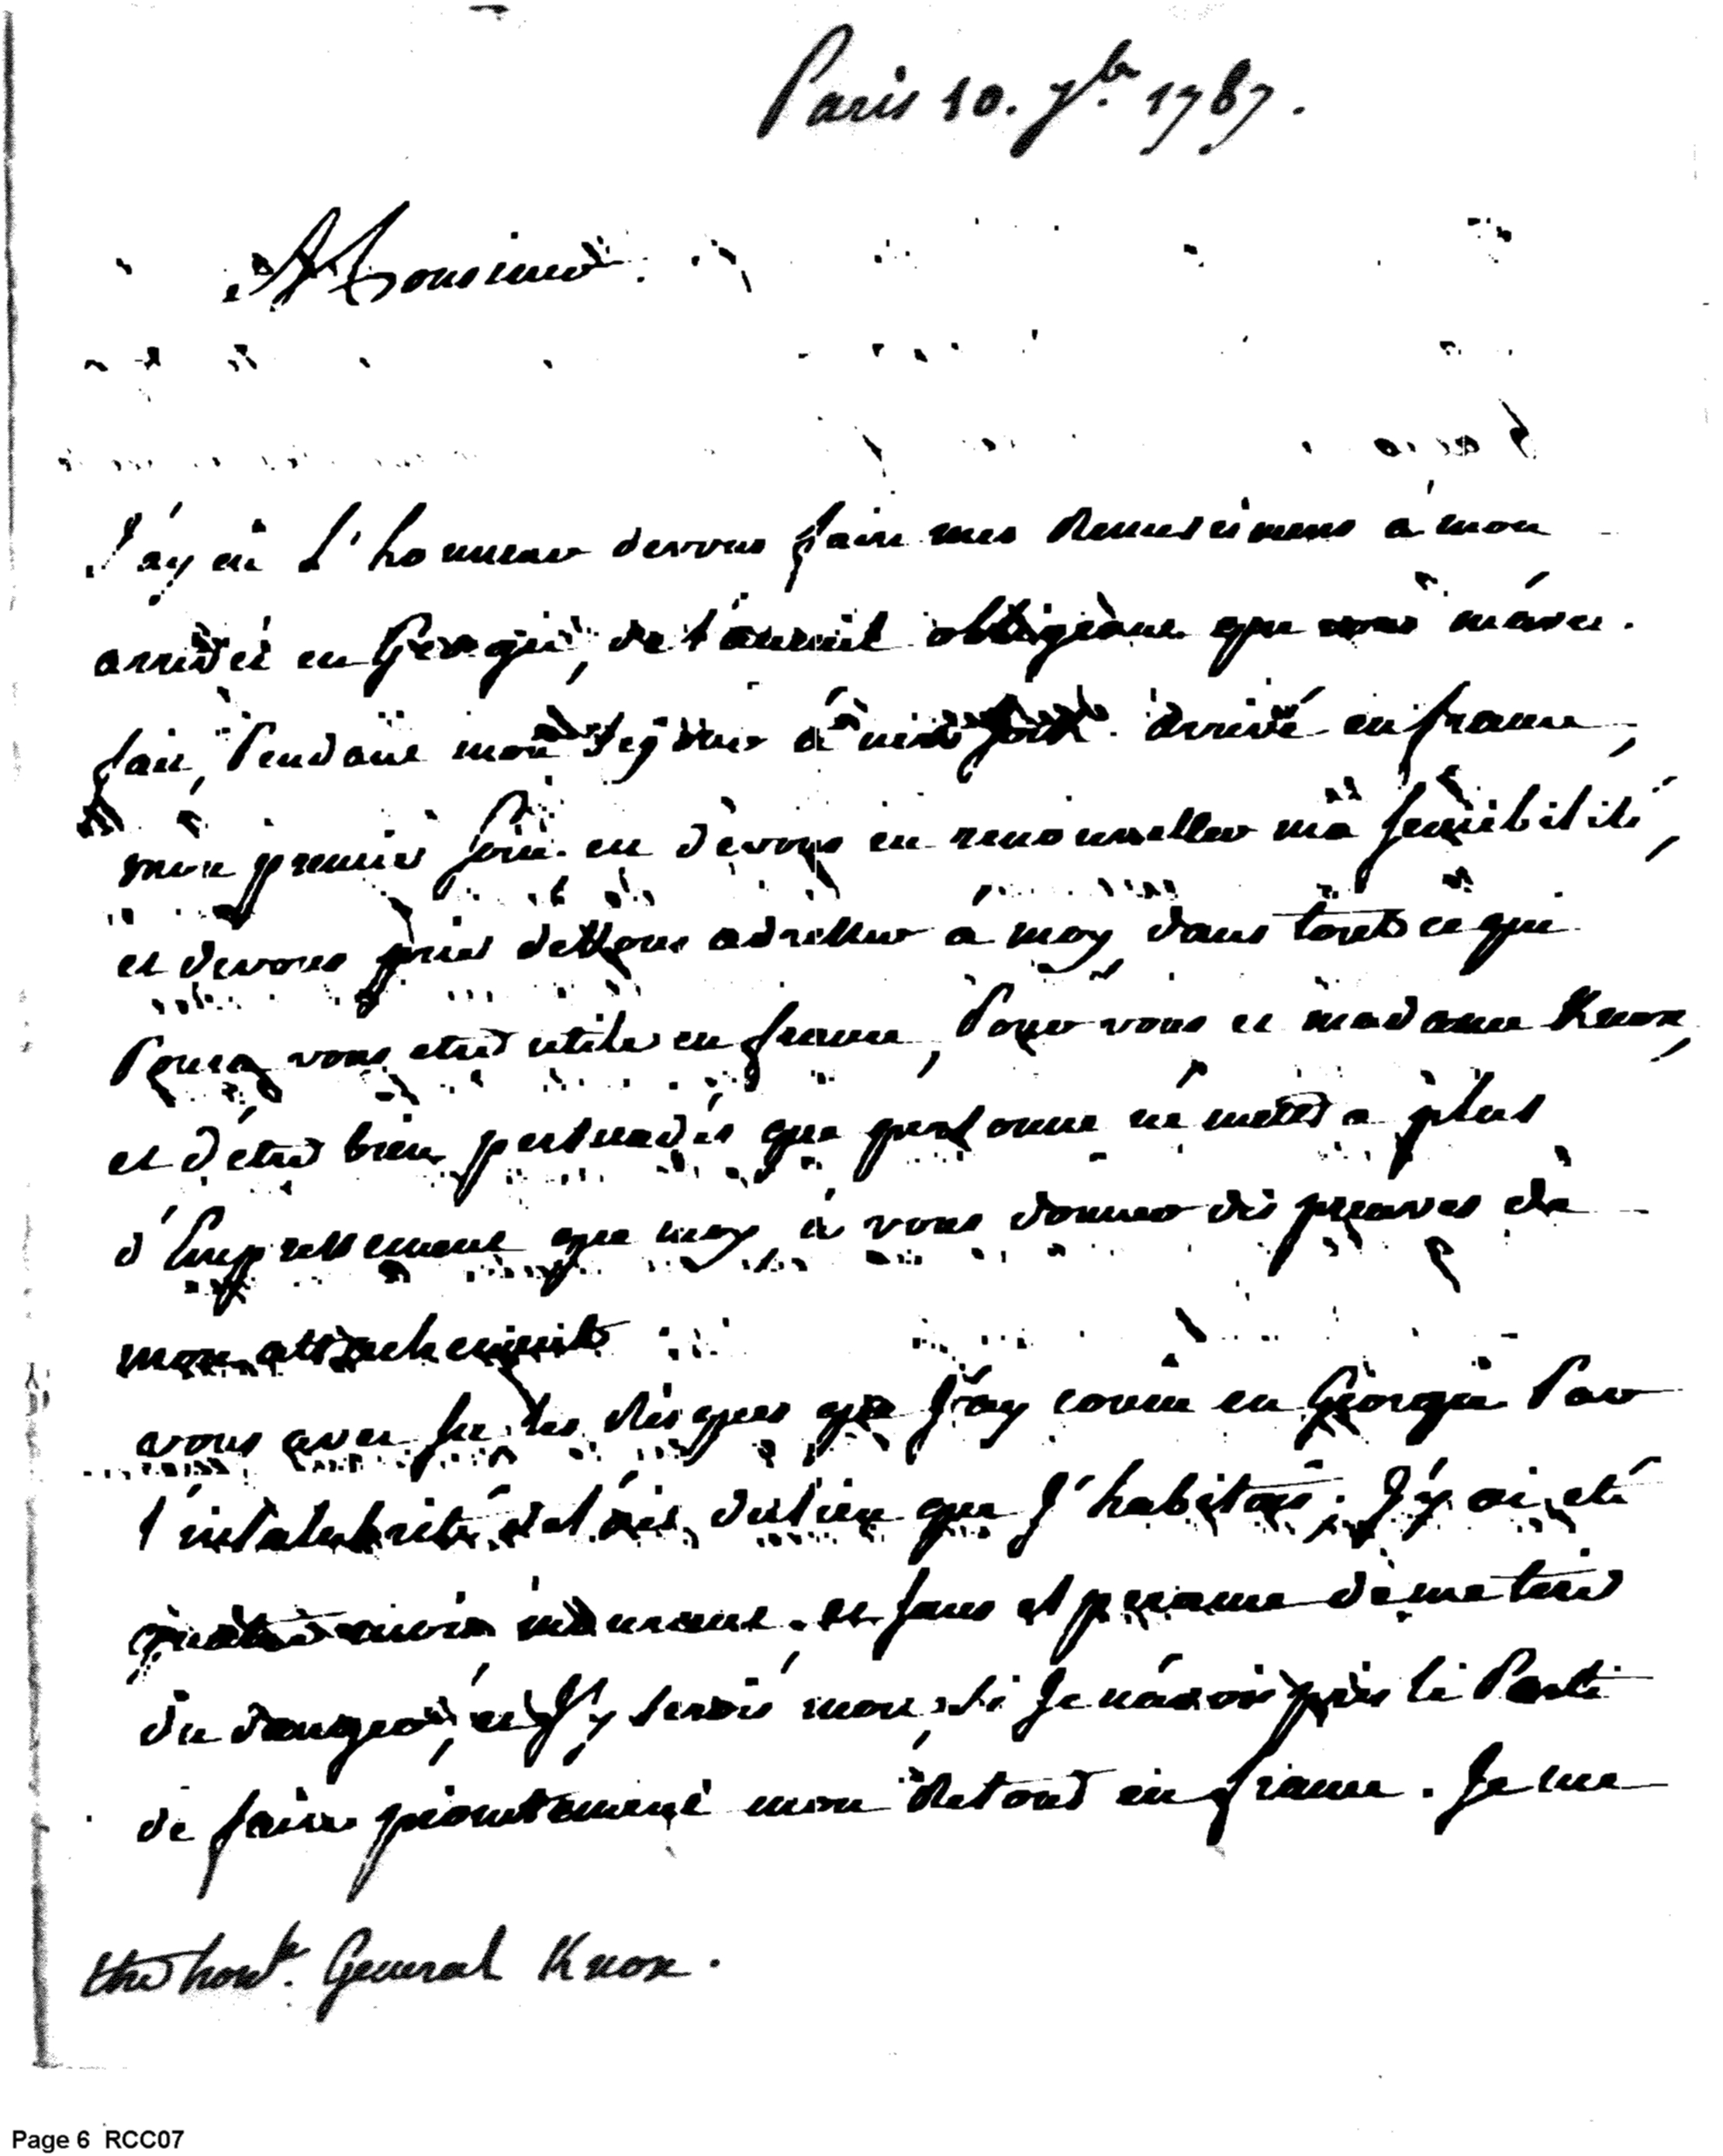 Paris 10. 7bre 1787.
Monsieur.
J'ay eü L'honneur devous faire mes Remerciments a mon
arrivée en Georgie, de l'acceuil obligeant que vous m'avez
fait, Pendant mon sejour à newyork. arrivé en france,
mon premier soin. est devous en renouveller ma sensibilité,
et devous prier devous adresser a moy dans touts ce qui
Poura vous etre utile en france, Pour vous et madame Knox,
et d'étre bien persuadés que personne né mettra plus
d'Empressement que moy, à vous donner des preuves de
mon attachement
vous avez su les Risques que J'ay couru en Géorgie Par
l'insalubrité de l'air du lieu que J'habitois; J'y ai eté
quatre mois mourant. et sans esperance de me tirer
du danger, et J'y serois mort, si Je n'avois pris le Parti
de faire promtement mon Retour en france. Je me
the honble. General Knox.
Page 6 RCC07